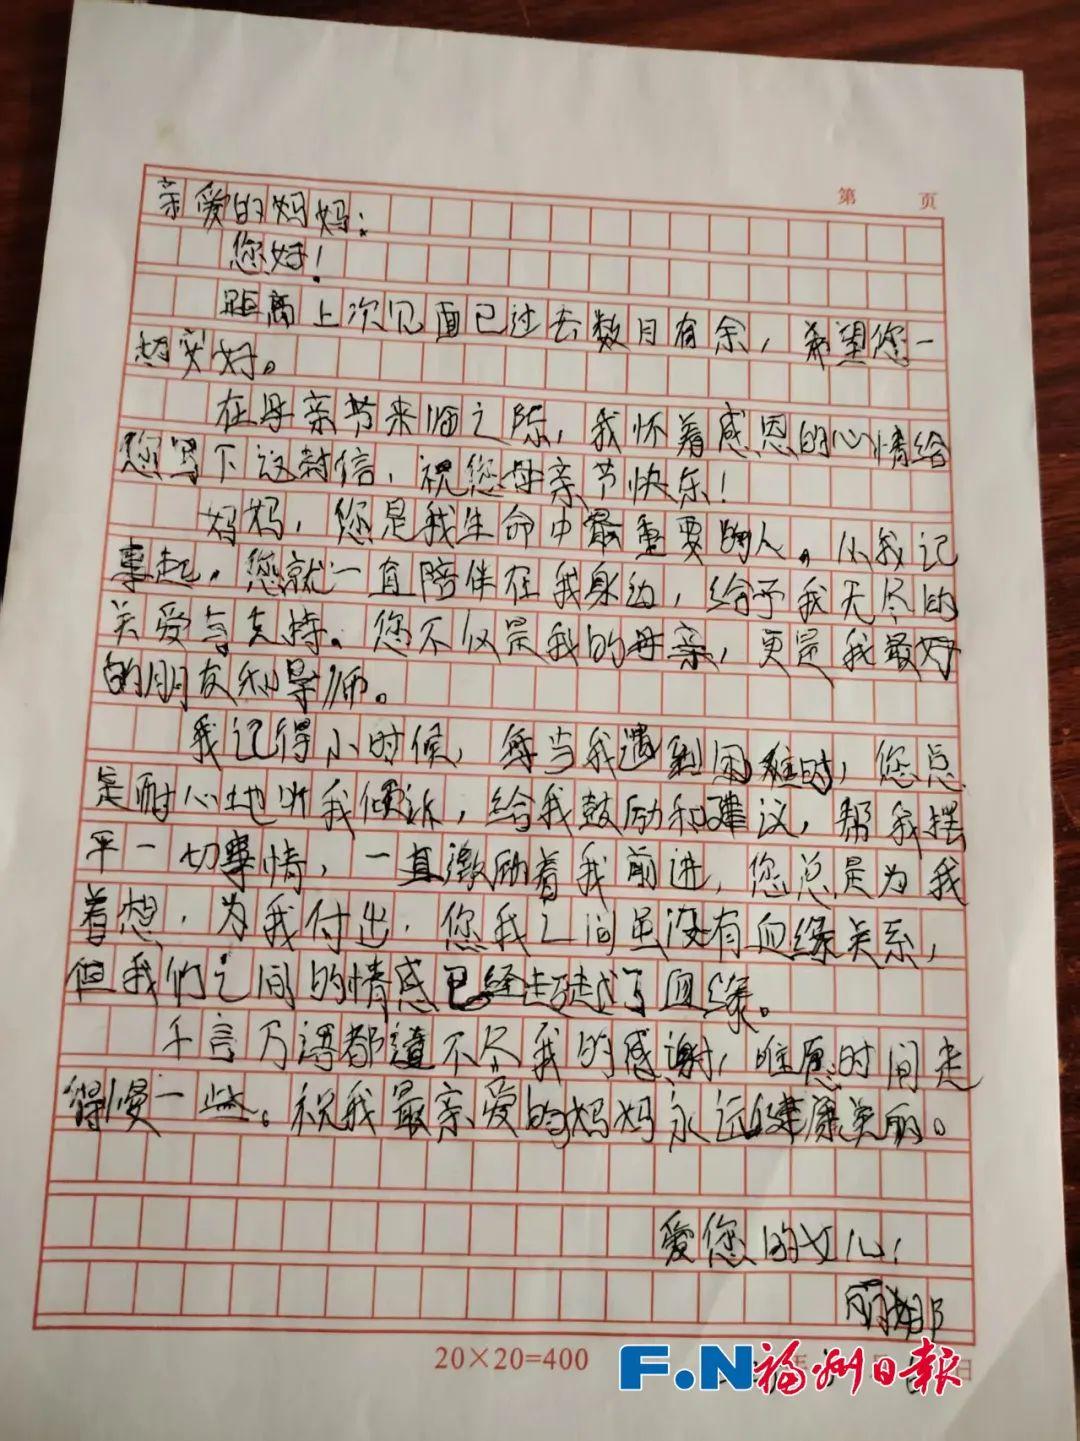 第 页
亲爱的妈妈：
您好！
距离上次见面已过去数月有余，希望您一
切安好。
在母亲节来临之际，我怀着感恩的心情给
您写下这封信，祝您母亲节快乐！
妈妈，您是我生命中最重要的人。从我记
事起，您就一直陪伴在我身边，给予我无尽的
关爱与支持。您不仅是我的母亲，更是我最好
的朋友和导师。
我记得小时候，每当我遇到困难时，您总
是耐心地听我倾诉，给我鼓励和建议，帮我摆
平一切事情，一直激励着我前进，您总是为我
着想，为我付出，您我之间虽没有血缘关系，
但我们之间的情感已经超越了血缘。
千言万语都道不尽我的感谢，唯愿时间走
得慢一些。祝我最亲爱的妈妈永远健康美丽。
爱您的女儿：
丽娜
20×20=400
F.N福州日报
日